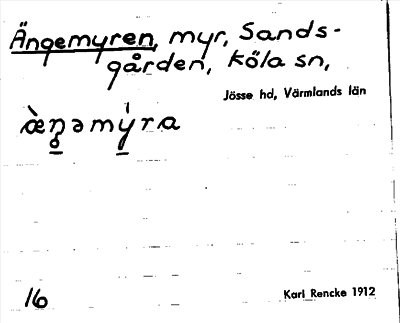 Ängemyren, myr, Sands-
gården, Köla sn,
Jösse hd, Värmlands län
æ̀ŋəmýra
16
Karl Rencke 1912